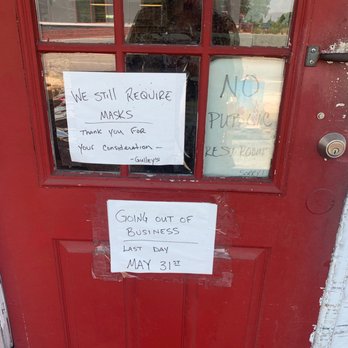 We Still Require
Masks
Thank you for
your consideration -
- Gulley's
No
Public
Restroom
Going out of
Business
Last Day
May 31st